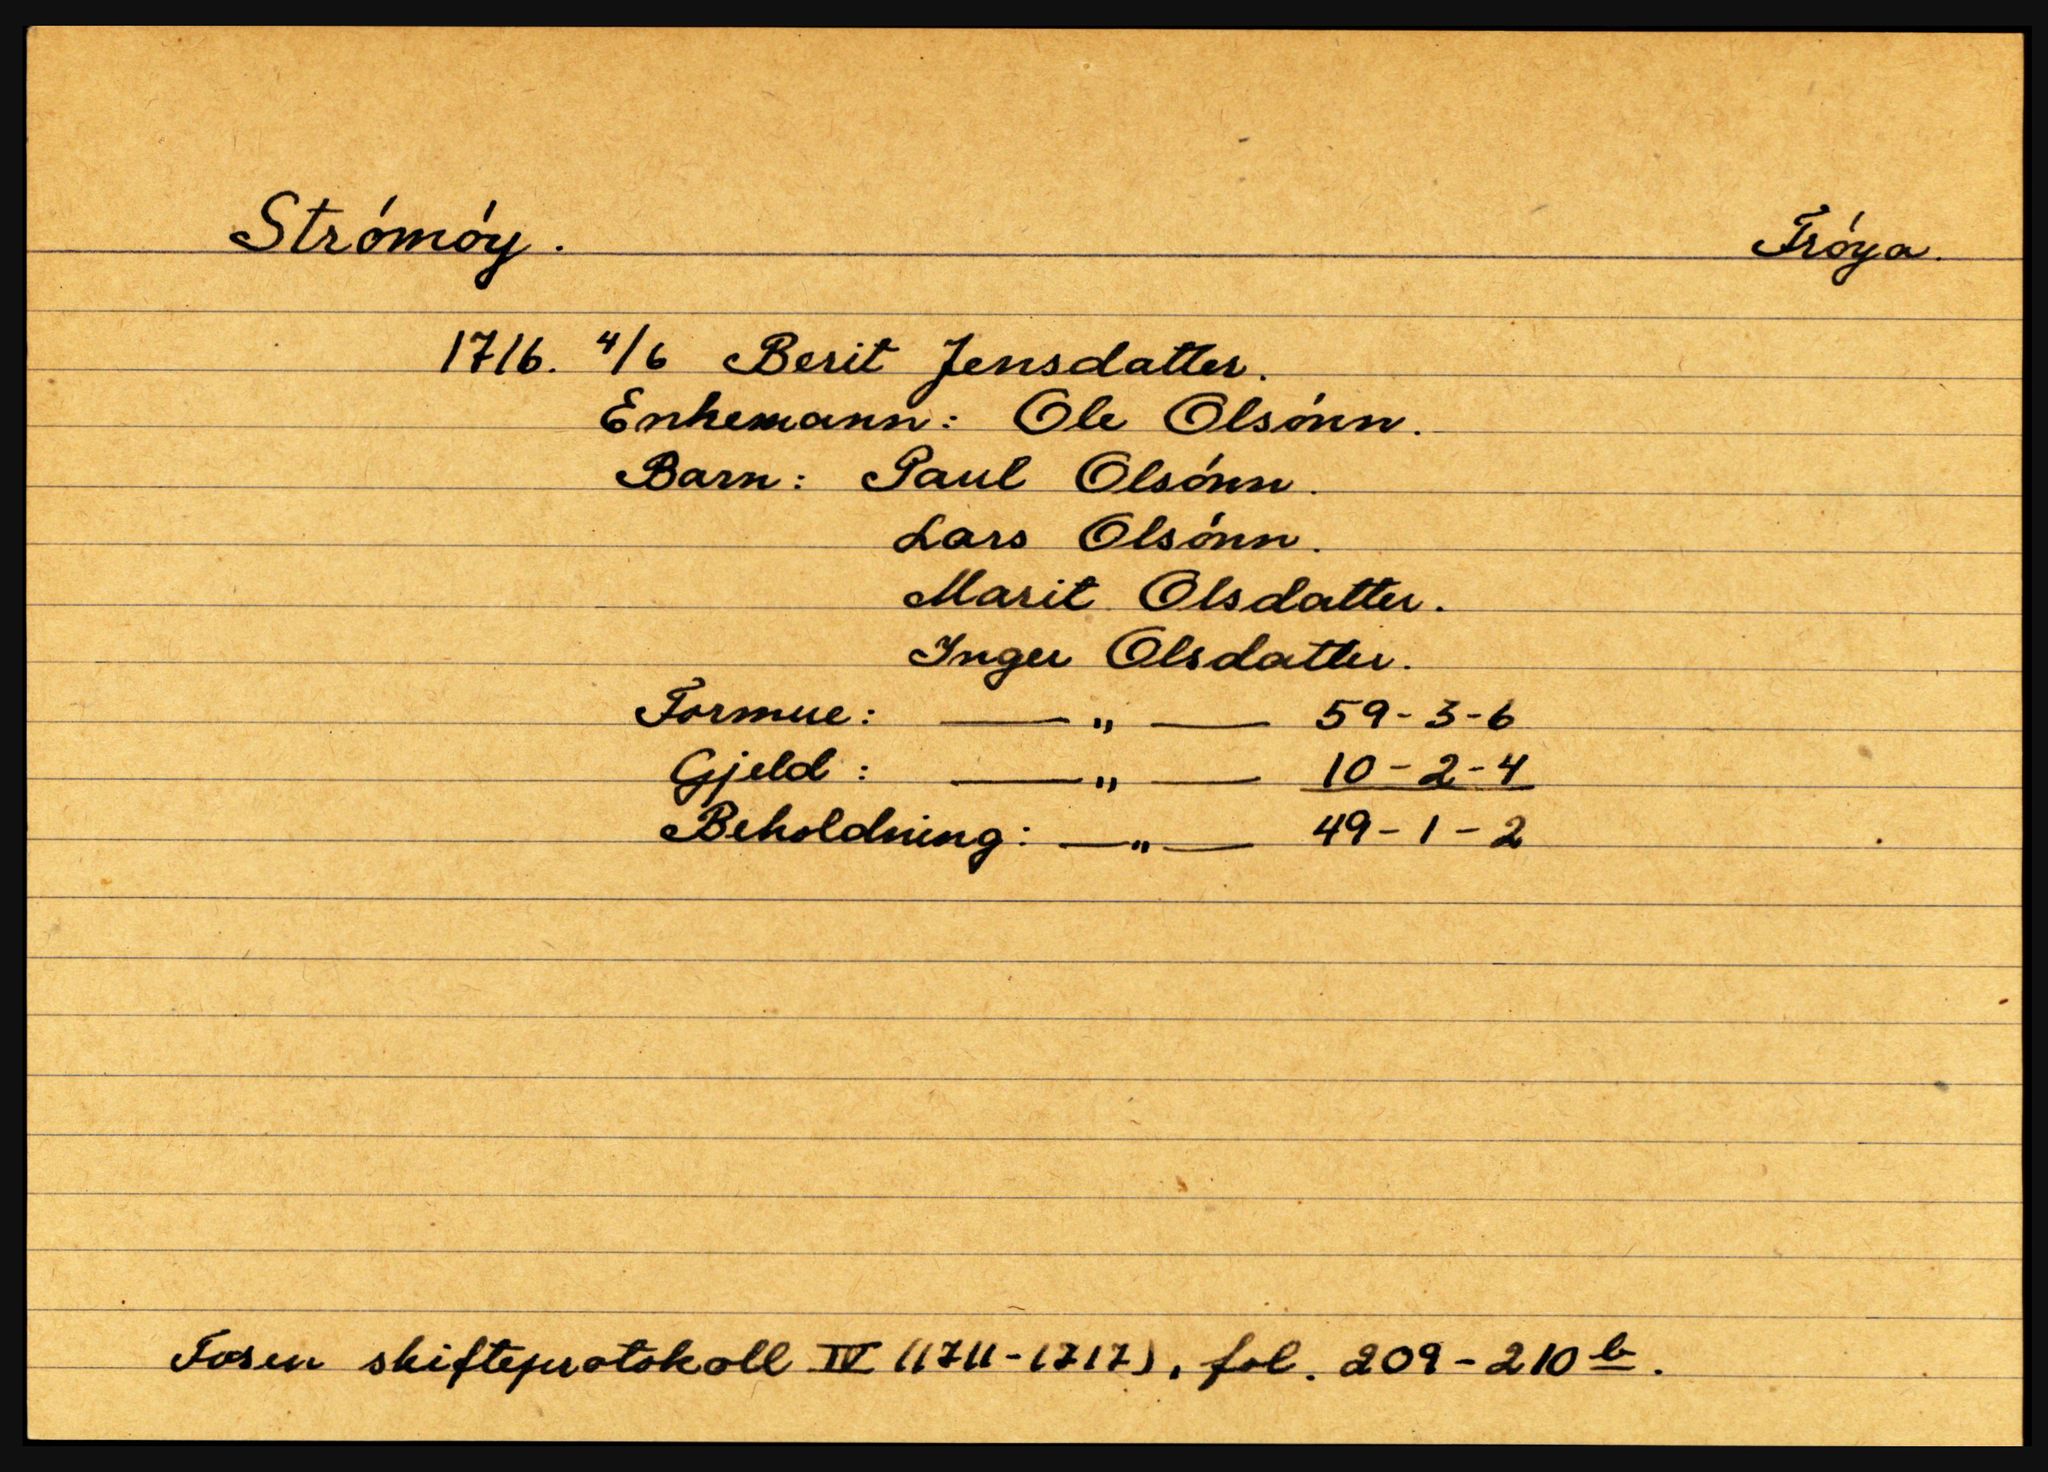 Strómóy. Fróya.
1716. 4/6 Berit Jensdatter.
Enkemann: Ole Olsónn.
Barn: Paul Olsónn.
Lars Olsónn.
Marit Olsdatter.
Inger Olsdatter.
Formue: — „ — 59-3-6
Gjeld: — „ — 10-2-4
Beholdning: — „ — 49-1-2
Fosen skifteprotokoll IV (1711-1717), fol. 209-210 b.